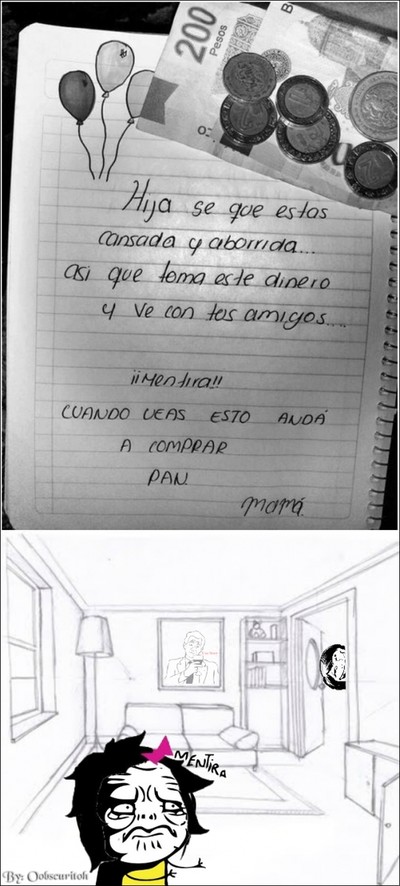 200
Pesos
Hija se que estas
cansada y aborrida...
asi que toma este dinero
y ve con tos amigos....
¡¡Mentira!!
CUANDO VEAS ESTO ANDÁ
A COMPRAR
PAN.
Mamá.
MENTIRA
By: Oobscuritoh